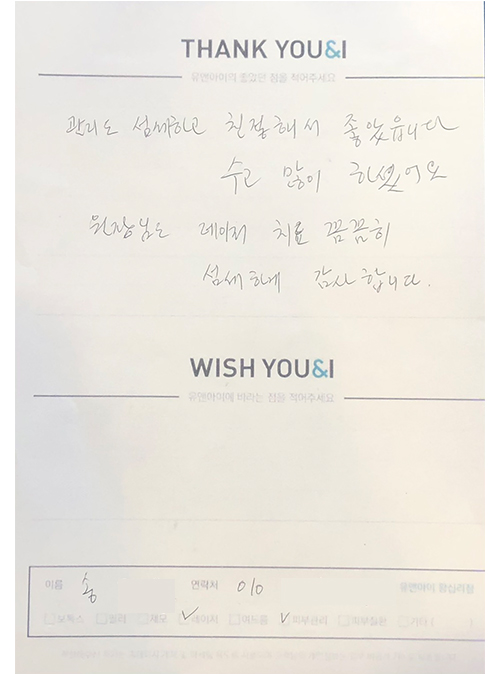 THANK YOU&I
유앤아이의 좋았던 점을 적어주세요
관리도 섬세하고 친절해서 좋았읍니다
수고 많이 하셨어요
원장님도 레이저 치료 꼼꼼히
섬세하게 감사합니다.
WISH YOU&I
유앤아이에 바라는 점을 적어주세요
이름 송 연락처 010 유앤아이 왕십리점
보톡스 필러 제모 레이저 여드름 피부관리 피부질환 기타 ( )